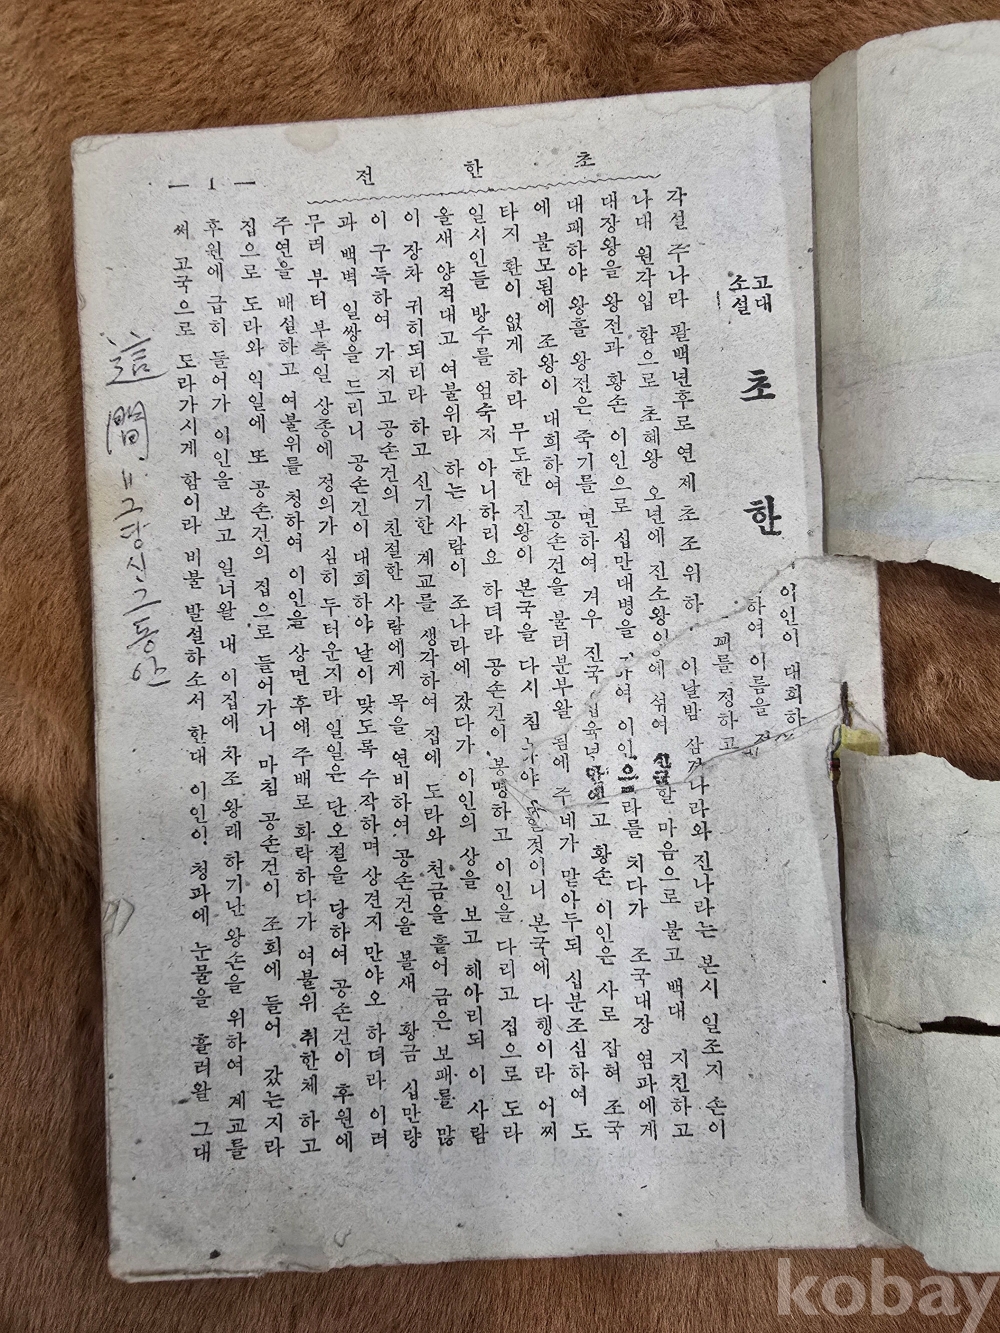 초 한 전
— 1 —
고대
소설
초 한
이인이 대희하
하여 이름을
꾀를 정하고
각설 주나라 팔백년후로 연 제 초 조 위 하 이날밤 삼 나라와 진나라는 본시 일조지 손이
나대 원각입 함으로 초혜왕 오년에 진소왕 에 섞여 할 마음으로 불고 백대 지친하고
대장왕을 왕전과 황손 이인으로 십만대병을 여 이인으 라를 치다가 조국대장 염파에게
대패하야 왕흘 왕전은 죽기를 면하여 겨우 진국 고 황손 이인은 사로 잡혀 조국
에 볼모됨에 조왕이 대희하여 공손건을 불러분부왈 됨에 주 네가 맡아두되 십분조심하여 도
타지 환이 없게 하라 무도한 진왕이 본국을 다시 침 야 것이니 본국에 다행이라 어찌
일시인들 방수를 엄숙지 아니하리요 하더라 공손건이 봉명하고 이인을 다리고 집으로 도라
올새 양적대고 여불위라 하는 사람이 조나라에 갔다가 이인의 상을 보고 헤아리되 이 사람
이 장차 귀히되리라 하고 신기한 계교를 생각하여 집에 도라와 천금을 흩어 금은 보패를 많
이 구득하여 가지고 공손건의 친절한 사람에게 목을 연비하여 공손건을 볼새 황금 십만량
과 백벽 일쌍을 드리니 공손건이 대희하야 날이 맞도록 수작하며 상견지 만야오 하더라 이러
무러 부터 부축일 상종에 정의가 심히 두터운지라 일일은 단오절을 당하여 공손건이 후원에
주연을 배설하고 여불위를 청하여 이인을 상면 후에 주배로 화락하다가 여불위 취한체 하고
집으로 도라와 익일에 또 공손건의 집으로 들어가니 마침 공손건이 조회에 들어 갔는지라
후원에 급히 들어가 이인을 보고 일너왈 내 이집에 차조 왕래 하기난 왕손을 위하여 계교를
써 고국으로 도라가시게 함이라 비불 발설하소서 한대 이인이 청파에 눈물을 흘러왈 그대
這間 〃 그당시 그동안
kobay